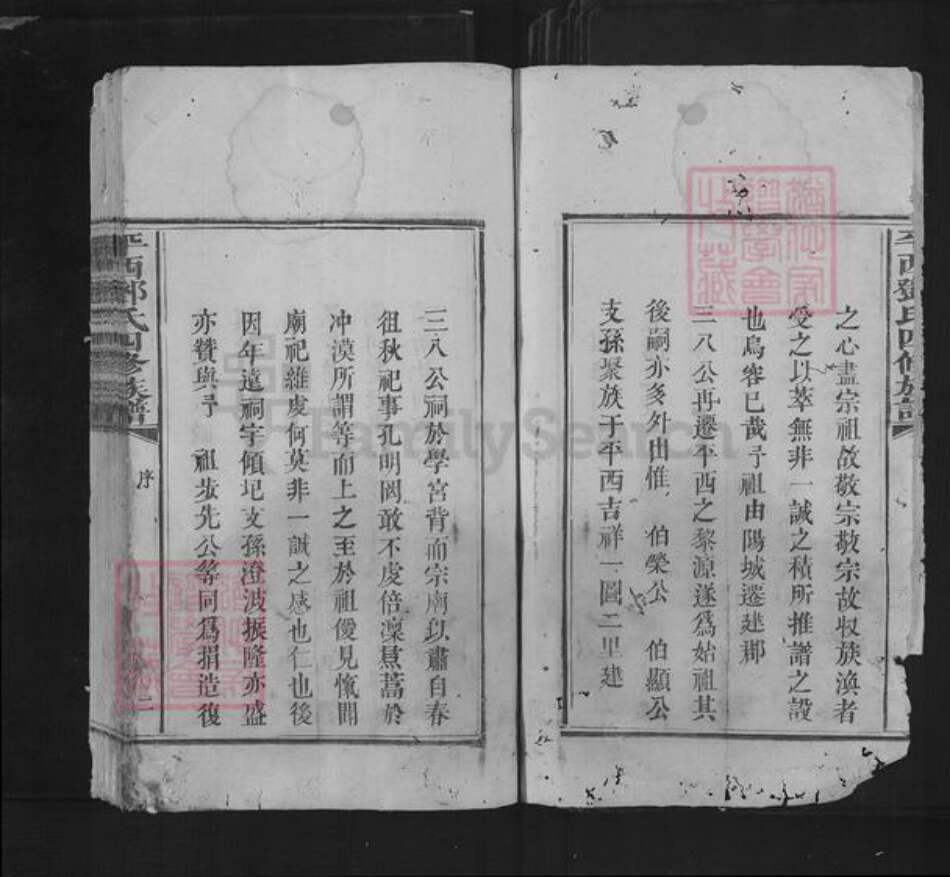 平西鄧氏四修族譜
之心盡宗祖故敬宗敬宗故収族渙者
受之以萃無非一誠之積所推譜之設
也烏容已哉予祖由陽城遷建郡
三八公再遷平西之黎源遂爲始祖其
後嗣亦多外出惟 伯榮公 伯顯公
支孫聚族于平西吉祥一圖二里建
三八公祠於學宮背而宗廟以肅自春
徂秋祀事孔明罔敢不虔倍凜焄蒿於
冲漠所謂等而上之至於祖僾見愾聞
廟祀維虔何莫非一誠之感也仁也後
因年遠祠宇傾圮支孫澄波振隆亦盛
亦贊與予 祖步先公等同爲捐造復
平西鄧氏四修族譜
序
二
FamilySearch